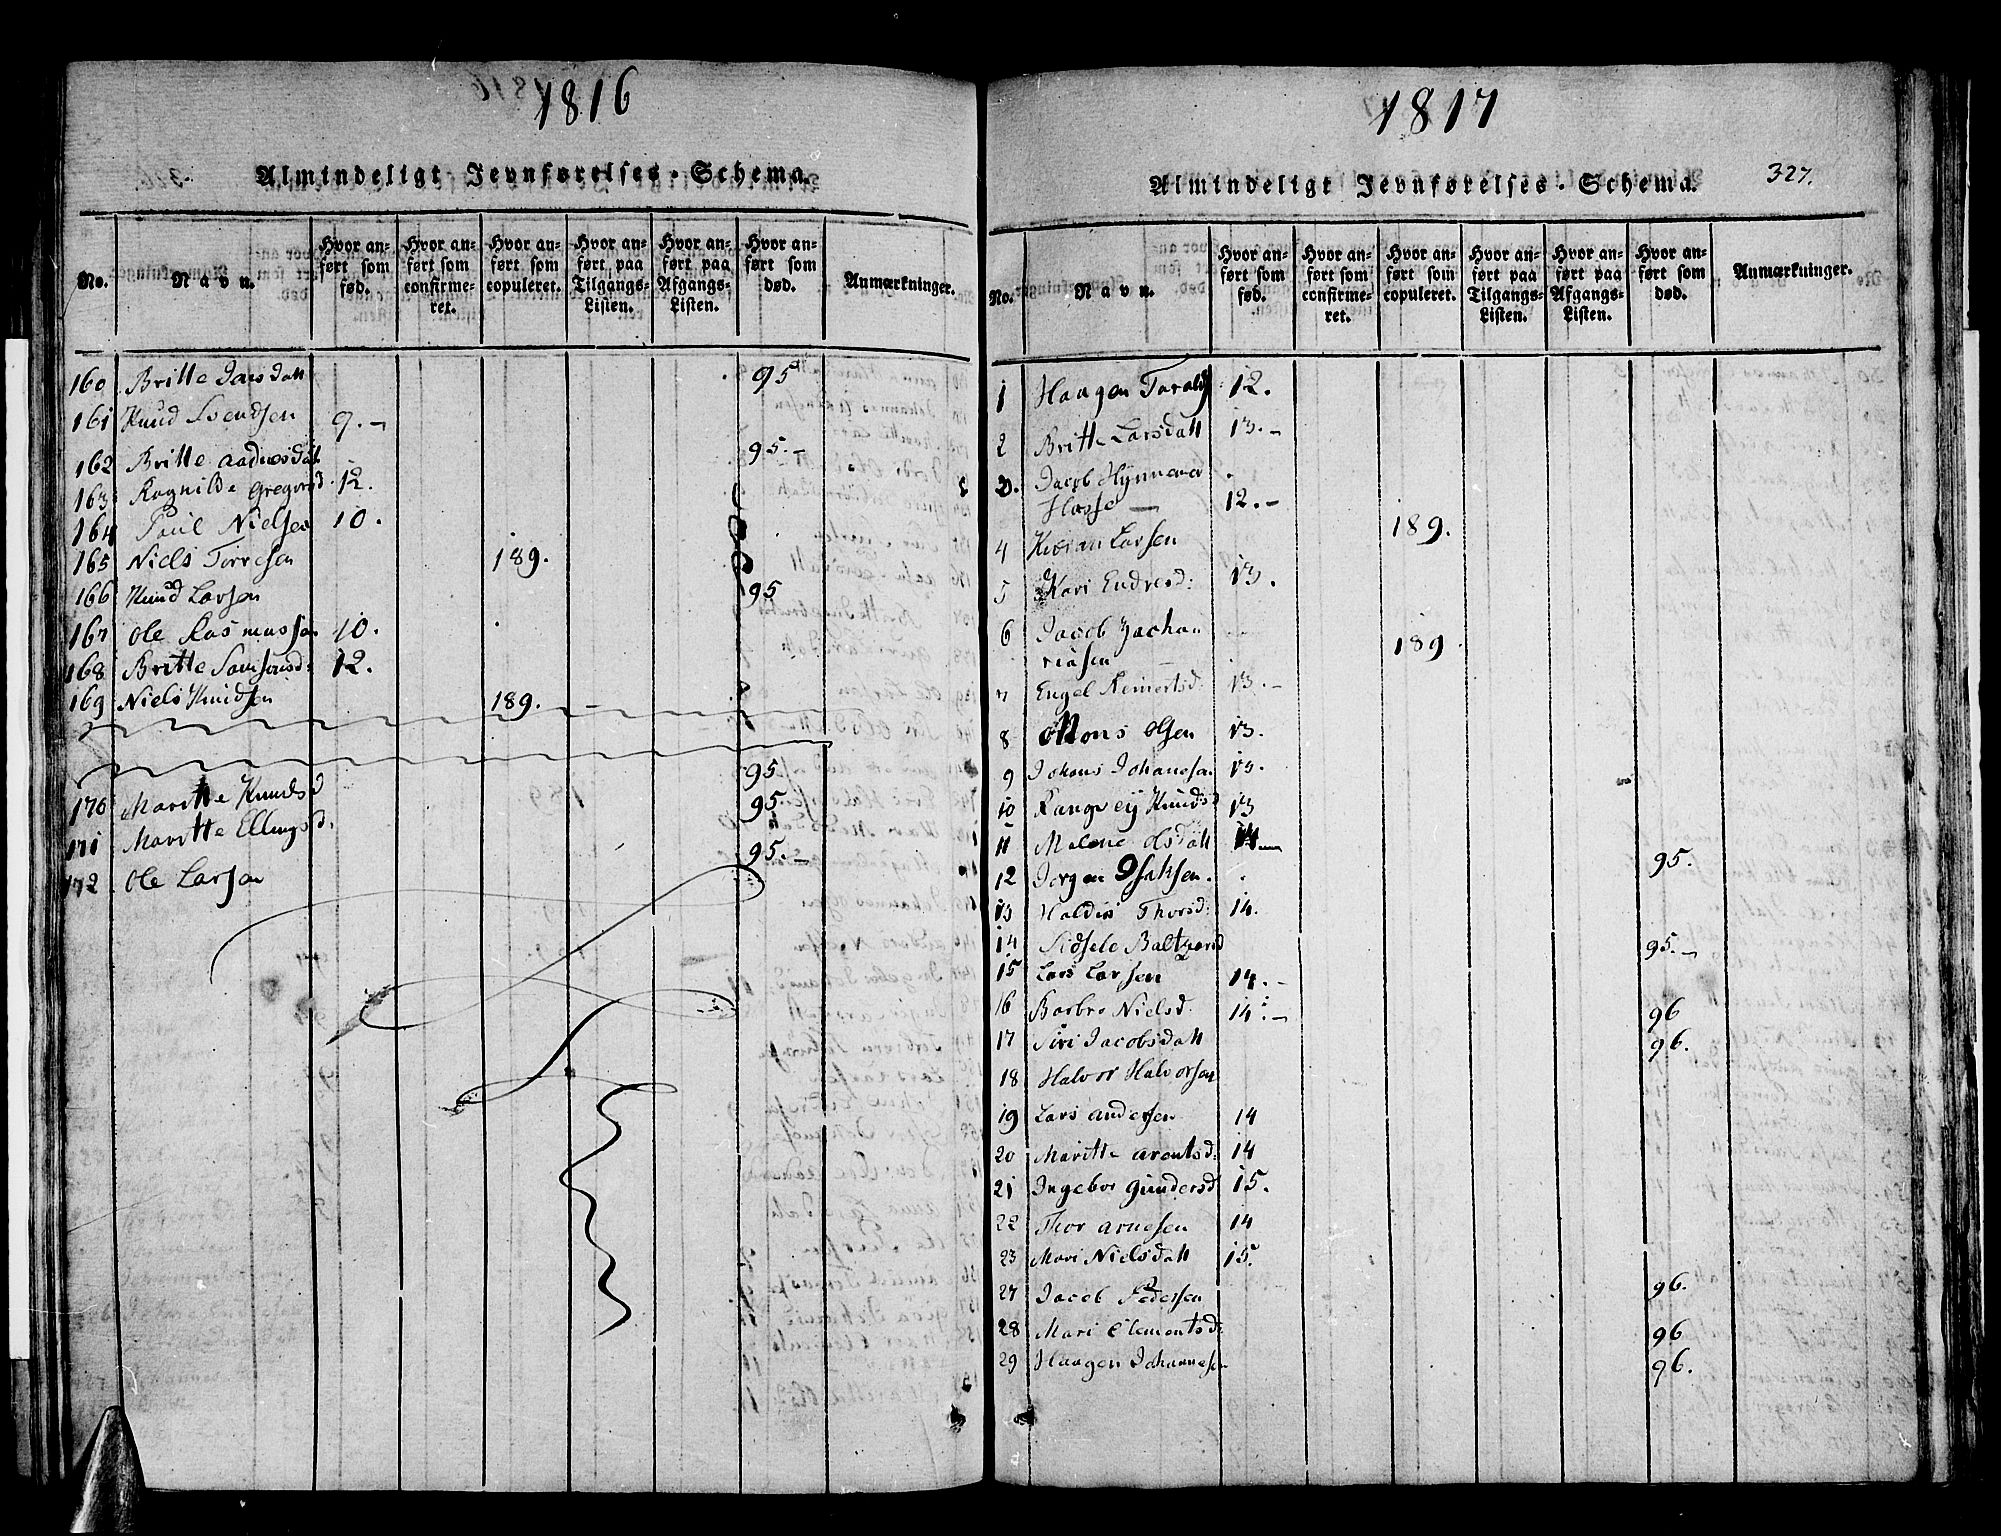 1816
Almindeligt Jevnførelses-Schema.
No. Navn. Hvor anført som fød. Hvor anført som confirmeret. Hvor anført som copuleret. Hvor anført paa Tilgangs-Listen. Hvor anført paa Afgangs-Listen. Hvor anført som død. Anmærkninger.
160 Britte Larsdatt 95
161 Knud Svendsen 9.-
162 Britte Aadnesdat 95.-
163 Ragnilde Gregorsd. 12.
164 Poul Nielsen 10.
165 Niels Torresen 189.
166 Knud Larsen 95
167 Ole Rasmussen 10.
168 Britte Samsonsd: 12.
169 Niels Knudsen 189.-
170 Maritte Knudsd 95
171 Maritte Ellingsd. 95.
172 Ole Larsen 95.-
1817
Almindeligt Jevnførelses-Schema. 327.
No. Navn. Hvor anført som fød. Hvor anført som confirmeret. Hvor anført som copuleret. Hvor anført paa Tilgangs-Listen. Hvor anført paa Afgangs-Listen. Hvor anført som død. Anmærkninger.
1 Haagen Taralds 12.
2 Britte Larsdatt 13.-
3. Jacob
Hasse - 12.-
4 Larsen 189.
5 Kari Endresd: 13.
6 Jacob Zacha
riasen 189.
7 Engel Reinertsd. 13.-
8 Mons Olsen 13.
9 Johans Johanesen 13.
10 Rangvey Knudsd 13
11 Malene Olsdatt 14-
12 Jørgen Isaksen. 95.
13 Thorsd: 14.
14 Sidsele 95.-
15 Lars Larsen 14.-
16 Barbro Nielsd. 14.-
17 Siri Jacobsdatt 96
18 Halvor Halvorsen 96.
19 Lars Andersen 14
20 Maritte Arentsd: 14
21 Ingebor Gundersd 15.
22 Thor Arnesen 14
23 Mari Nielsdatt 15.
27 Jacob Pedersen 96.
28 Mari Clementsd: 96
29 Haagen Johannesen 96.